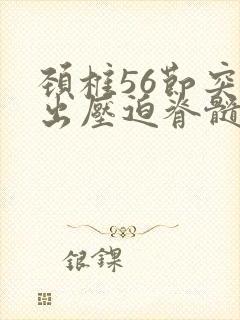 頚椎56節突
出壓迫脊髓
銀鏍